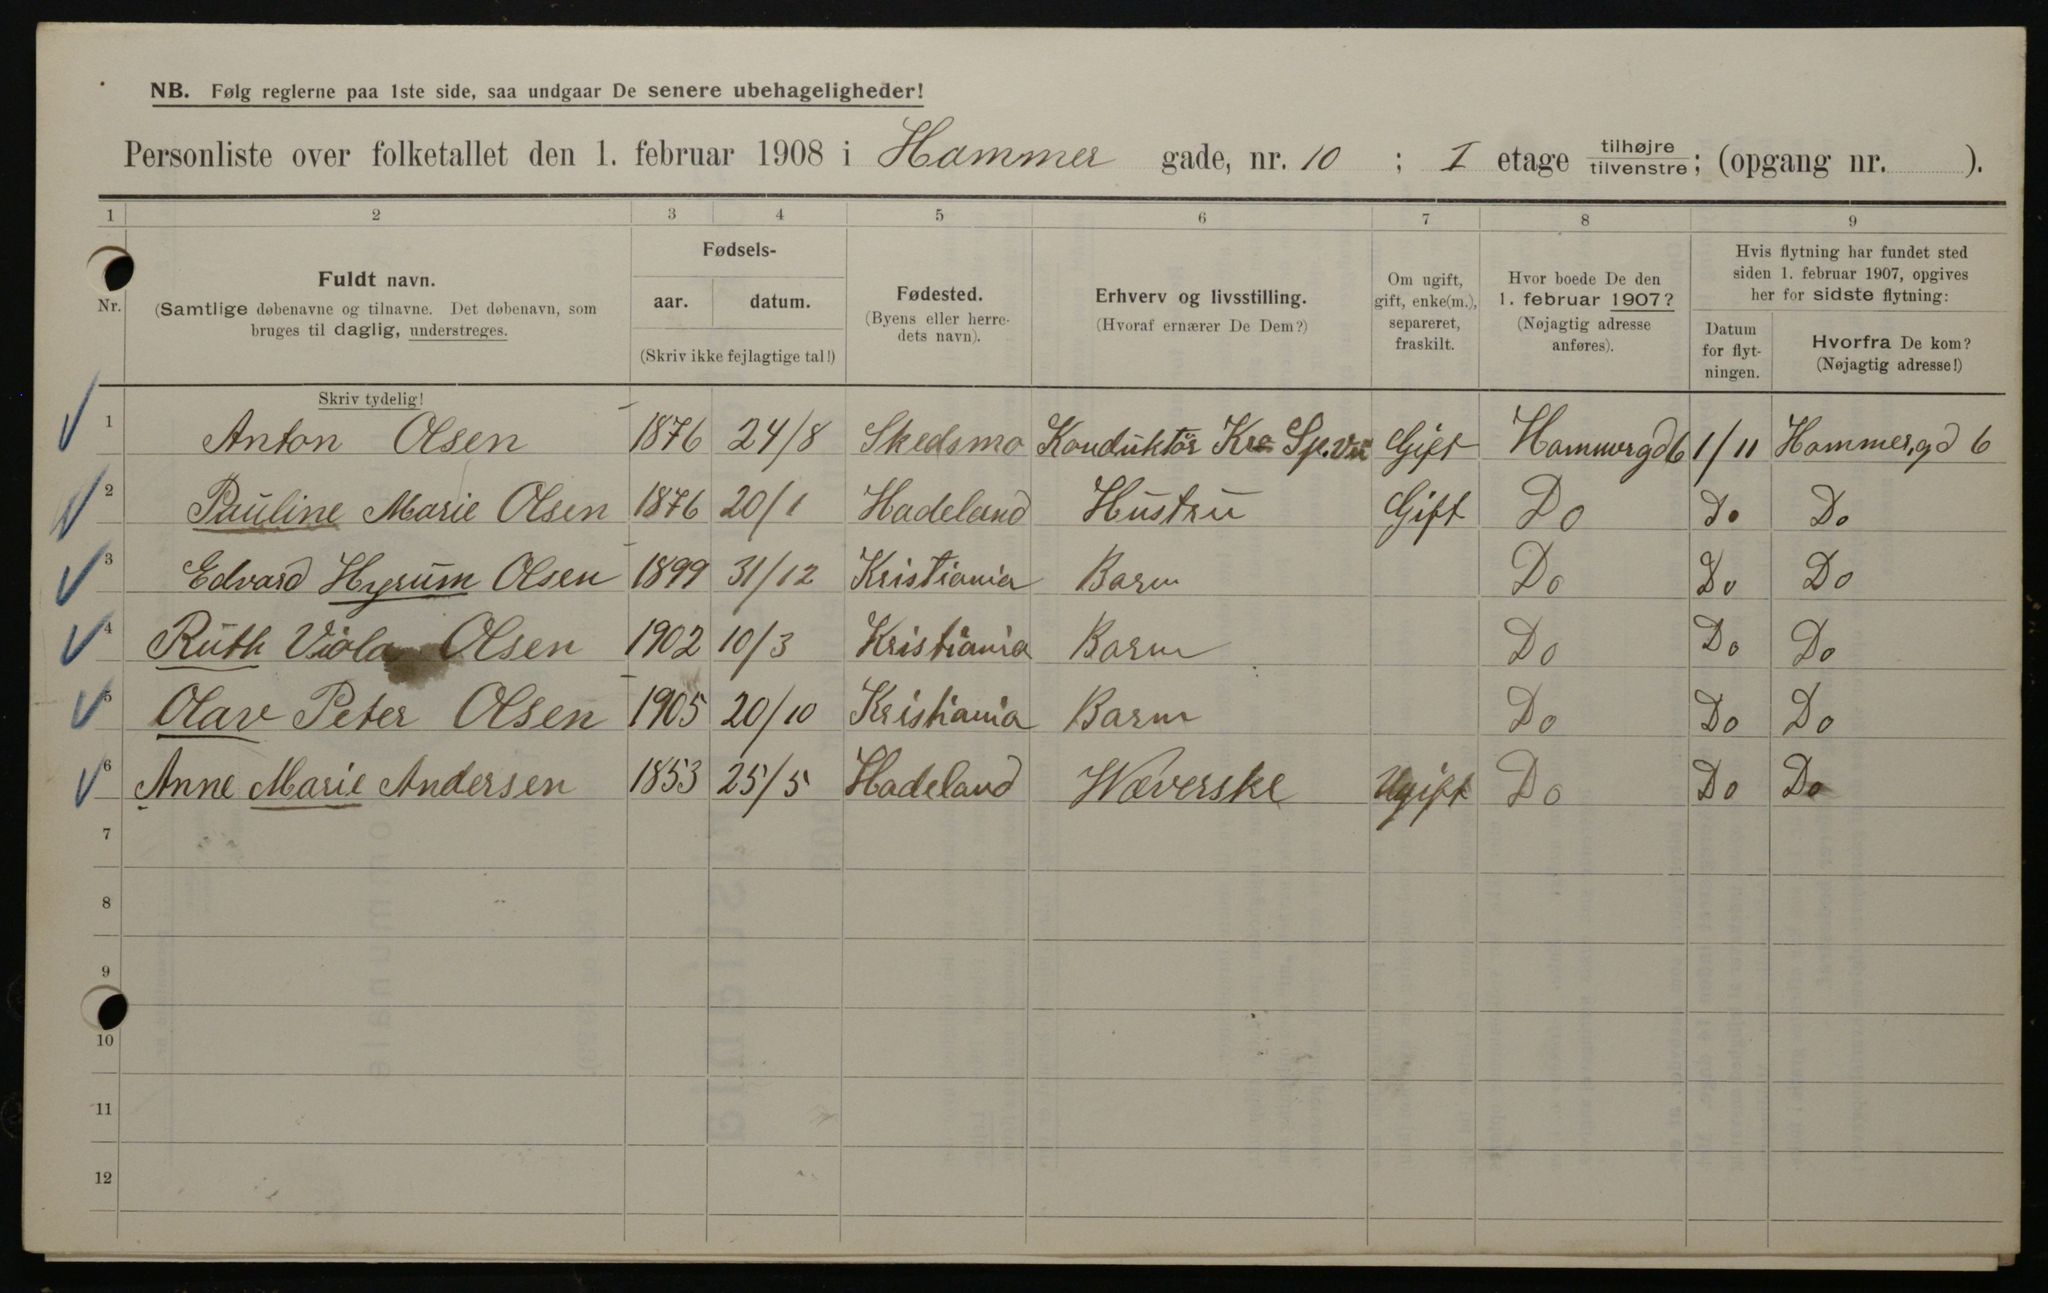 NB. Følg reglerne paa 1ste side, saa undgaar De senere ubehageligheder!
Personliste over folketallet den 1. februar 1908 i Hammer gade, nr. 10 ; I etage tilhøjre/tilvenstre; (opgang nr. ).
1 2 3 4 5 6 7 8 9
Nr.
Fuldt navn.
(Samtlige døbenavne og tilnavne. Det døbenavn, som
bruges til daglig, understreges.
Skriv tydelig!
Fødsels-
aar. datum.
(Skriv ikke fejlagtige tal!)
Fødested.
(Byens eller herre-
dets navn).
Erhverv og livsstilling.
(Hvoraf ernærer De Dem?)
Om ugift,
gift, enke(m.),
separeret,
fraskilt.
Hvor boede De den
1. februar 1907?
(Nøjagtig adresse
anføres).
Hvis flytning har fundet sted
siden 1. februar 1907, opgives
her for sidste flytning:
Datum
for flyt-
ningen.
Hvorfra De kom?
(Nøjagtig adresse!)
1 Anton Olsen 1876 24/8 Skedsmo Konduktör Kra Sp.v. Gift Hammergd 6 1/11 Hammer,gd 6
2 Pauline Marie Olsen 1876 20/1 Hadeland Hustru Gift Do Do Do
3 Edvard Hyrum Olsen 1899 31/12 Kristiania Barn Do Do Do
4 Ruth Viola Olsen 1902 10/3 Kristiania Barn Do Do Do
5 Olav Peter Olsen 1905 20/10 Kristiania Barn Do Do Do
6 Anne Marie Andersen 1853 25/5 Hadeland Wæverske Ugift Do Do Do
7
8
9
10
11
12